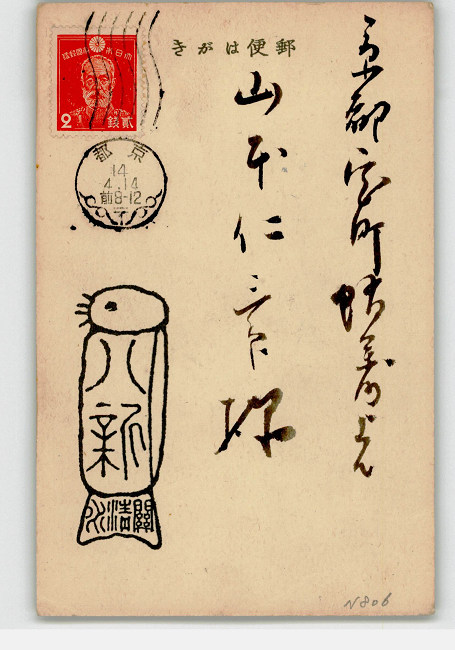 郵便はがき
京都室町蛸薬師上ル
山本仁三郎様
大日本帝國郵便
2 貳錢
京都
14
4.14
前8-12
八新
N806